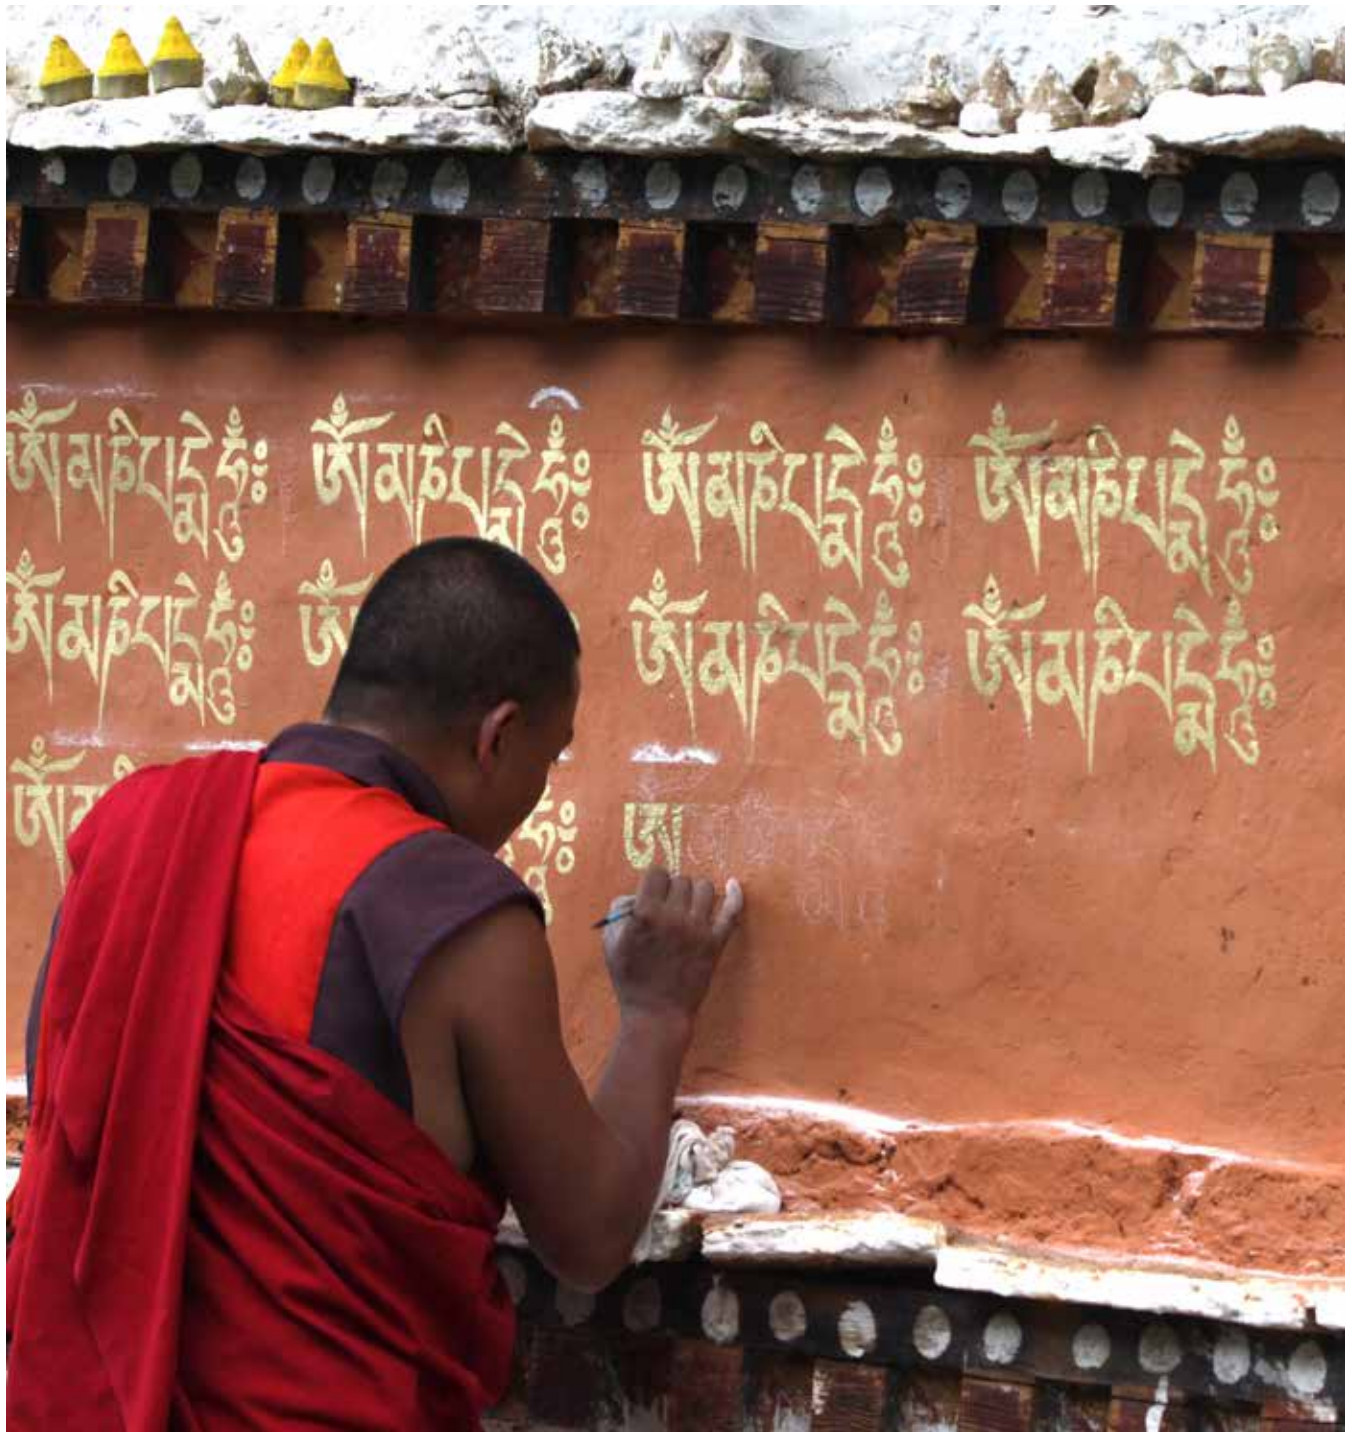 ཨོཾམཎིཔདྨེཧཱུྃ༔ ཨོཾམཎིཔདྨེཧཱུྃ༔ ཨོཾམཎིཔདྨེཧཱུྃ༔ ཨོཾམཎིཔདྨེཧཱུྃ༔
ཨོཾམཎིཔདྨེཧཱུྃ༔ ཨོཾ ཨོཾམཎིཔདྨེཧཱུྃ༔ ཨོཾམཎིཔདྨེཧཱུྃ༔
ཨོཾམ ཧཱུྃ༔ ཨ